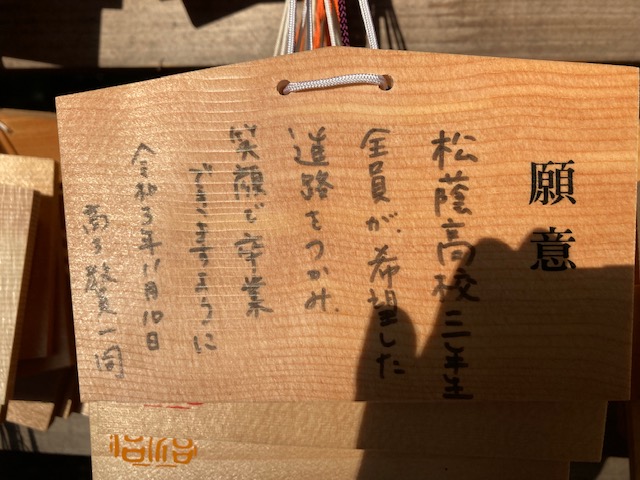 願意
松蔭高校三年生
全員が、希望した
進路をつかみ
笑顔で卒業
できますように
令和3年11月10日
高3 職員一同